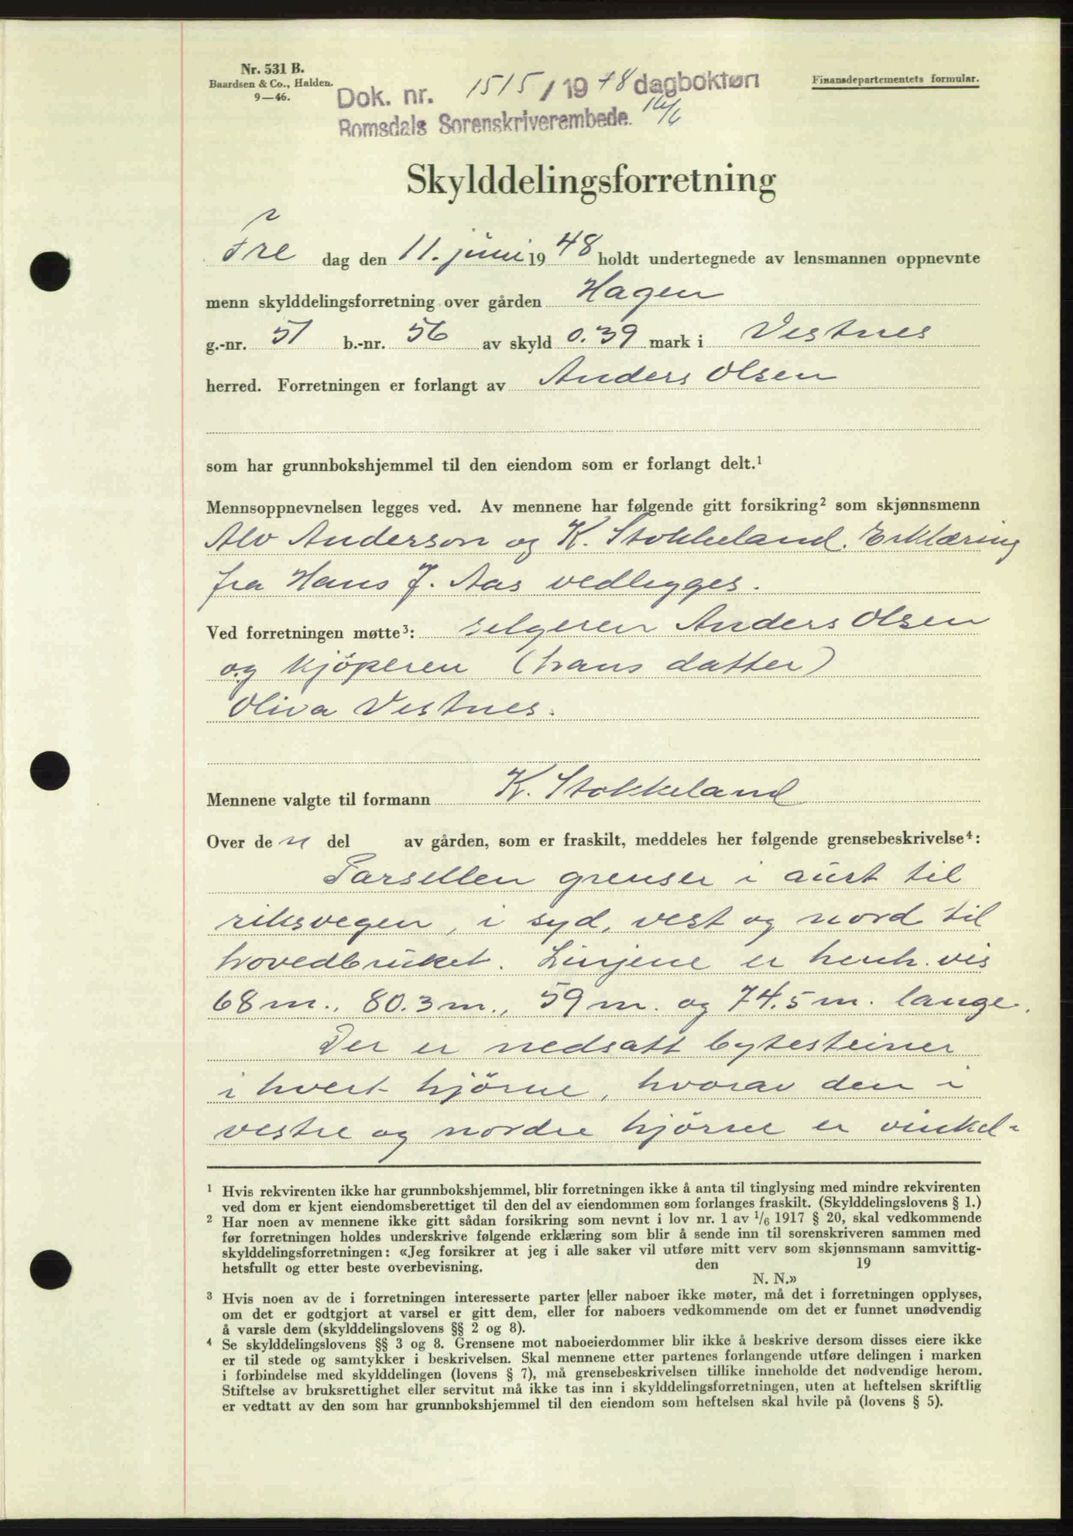 Nr. 531 B.
Baardsen & Co., Halden.
9—46.
Finansdepartementets formular.
Dok. nr. 1515/1948 dagboktøn
Romsdals Sorenskriverembede. 16/6
Skylddelingsforretning
Fre dag den 11. juni 1948 holdt undertegnede av lensmannen oppnevnte
menn skylddelingsforretning over gården Hagen
g.-nr. 51 b.-nr. 56 av skyld 0.39 mark i Vestnes
herred. Forretningen er forlangt av Anders Olsen
som har grunnbokshjemmel til den eiendom som er forlangt delt.¹
Mennsoppnevnelsen legges ved. Av mennene har følgende gitt forsikring² som skjønnsmenn
Alv Anderson og K. Stokkeland. Erklæring
fra Hans J. Aas vedlegges.
Ved forretningen møtte³: selgeren Anders Olsen
og kjöperen (hans datter)
Oliva Vestnes.
Mennene valgte til formann K. Stokkeland
Over de n del av gården, som er fraskilt, meddeles her følgende grensebeskrivelse⁴:
Parsellen grenser i aust til
riksvegen, i syd, vest og nord til
hovedbruket. Linjene er henh. vis
68 m., 80.3 m., 59 m. og 74.5 m. lange.
Der er nedsatt bytesteiner
i hvert hjörne, hvorav den i
vestre og nordre hjörne er vinkel-
¹ Hvis rekvirenten ikke har grunnbokshjemmel, blir forretningen ikke å anta til tinglysing med mindre rekvirenten
ved dom er kjent eiendomsberettiget til den del av eiendommen som forlanges fraskilt. (Skylddelingslovens § 1.)
² Har noen av mennene ikke gitt sådan forsikring som nevnt i lov nr. 1 av 1/6 1917 § 20, skal vedkommende
før forretningen holdes underskrive følgende erklæring som blir å sende inn til sorenskriveren sammen med
skylddelingsforretningen: «Jeg forsikrer at jeg i alle saker vil utføre mitt verv som skjønnsmann samvittig-
hetsfullt og etter beste overbevisning. den 19
N. N.»
³ Hvis noen av de i forretningen interesserte parter eller naboer ikke møter, må det i forretningen opplyses,
om det er godtgjort at varsel er gitt dem, eller for naboers vedkommende om det er funnet unødvendig
å varsle dem (skylddelingslovens §§ 2 og 8).
⁴ Se skylddelingslovens §§ 3 og 8. Grensene mot naboeierdommer blir ikke å beskrive dersom disses eiere ikke
er til stede og samtykker i beskrivelsen. Skal mennene etter partenes forlangende utføre delingen i marken
i forbindelse med skylddelingen (lovens § 7), må grensebeskrivelsen tillike inneholde det nødvendige herom.
Stiftelse av bruksrettighet eller servitut må ikke tas inn i skylddelingsforretningen, uten at heftelsen skriftlig
er vedtatt av den som har grunnbokshjemmel til den eiendom som heftelsen skal hvile på (lovens § 5).